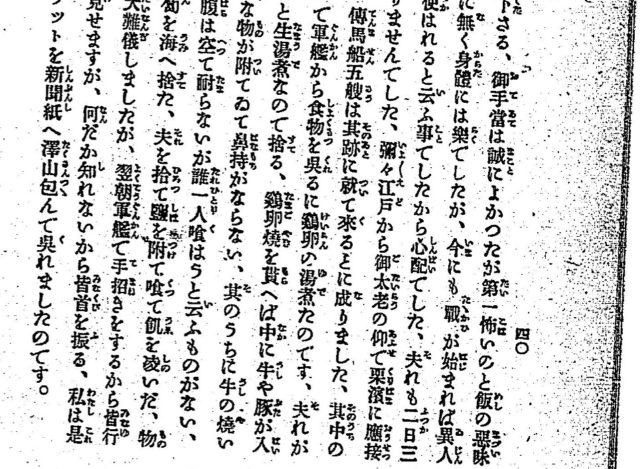 四〇
下さる、御手當は誠によかつたが第一怖いのと飯の惡味
に無く身體には樂でしたが、今にも戰が始まれば異人
使はれると云ふ事でしたから心配でした、夫れも二日三
りませんでした、彌々江戸から御太老の仰で栗濱に應接
傳馬船五艘は其跡に就て來るとに成りました、其中の
て軍艦から食物を呉るに鷄卵の湯煮たのです、夫れが
と生湯煮なので捨る、鷄卵燒を貰へば中に牛や豚が入
な物が附てゐて鼻持がならない、其のうちに牛の燒い
腹は空て耐らないが誰一人喰はうと云ふものがない、
匊を海へ捨た、夫を拾て鹽を附て喰て飢を凌いだ、物
大難儀しましたが、翌朝軍艦で手招きをするから皆行
見せますが、何だか知れないから皆首を振る、私は是
ットを新聞紙へ澤山包んで呉れましたのです。